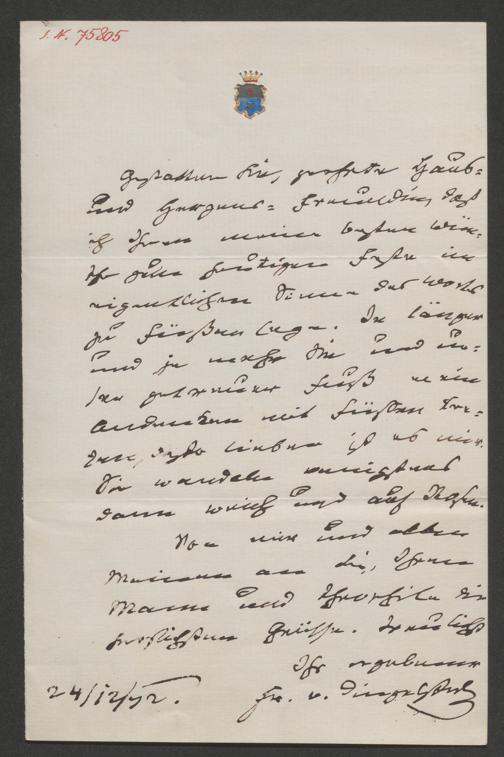 I. N. 75805
Gestatten Sie, geehrte Haus-
und Herzens-Freundin, daß
ich Ihnen meine besten Wün-
sche zum heutigen Feste im
eigentlichen Sinne des Worts
zu Füßen lege. Je länger
und je mehr Sie und
Fuß mein
Andenken mit Füßen tre-
ten, desto lieber ist es mir.
Sie wandeln wenigstens
dann weich und auf Rosen.
Von mir und allen
Meinen an Sie, Ihren
Mann und die
herzlichsten Grüße. Treulichst
Ihr ergebener
Fr. v. Dingelstedt
24/12/72.